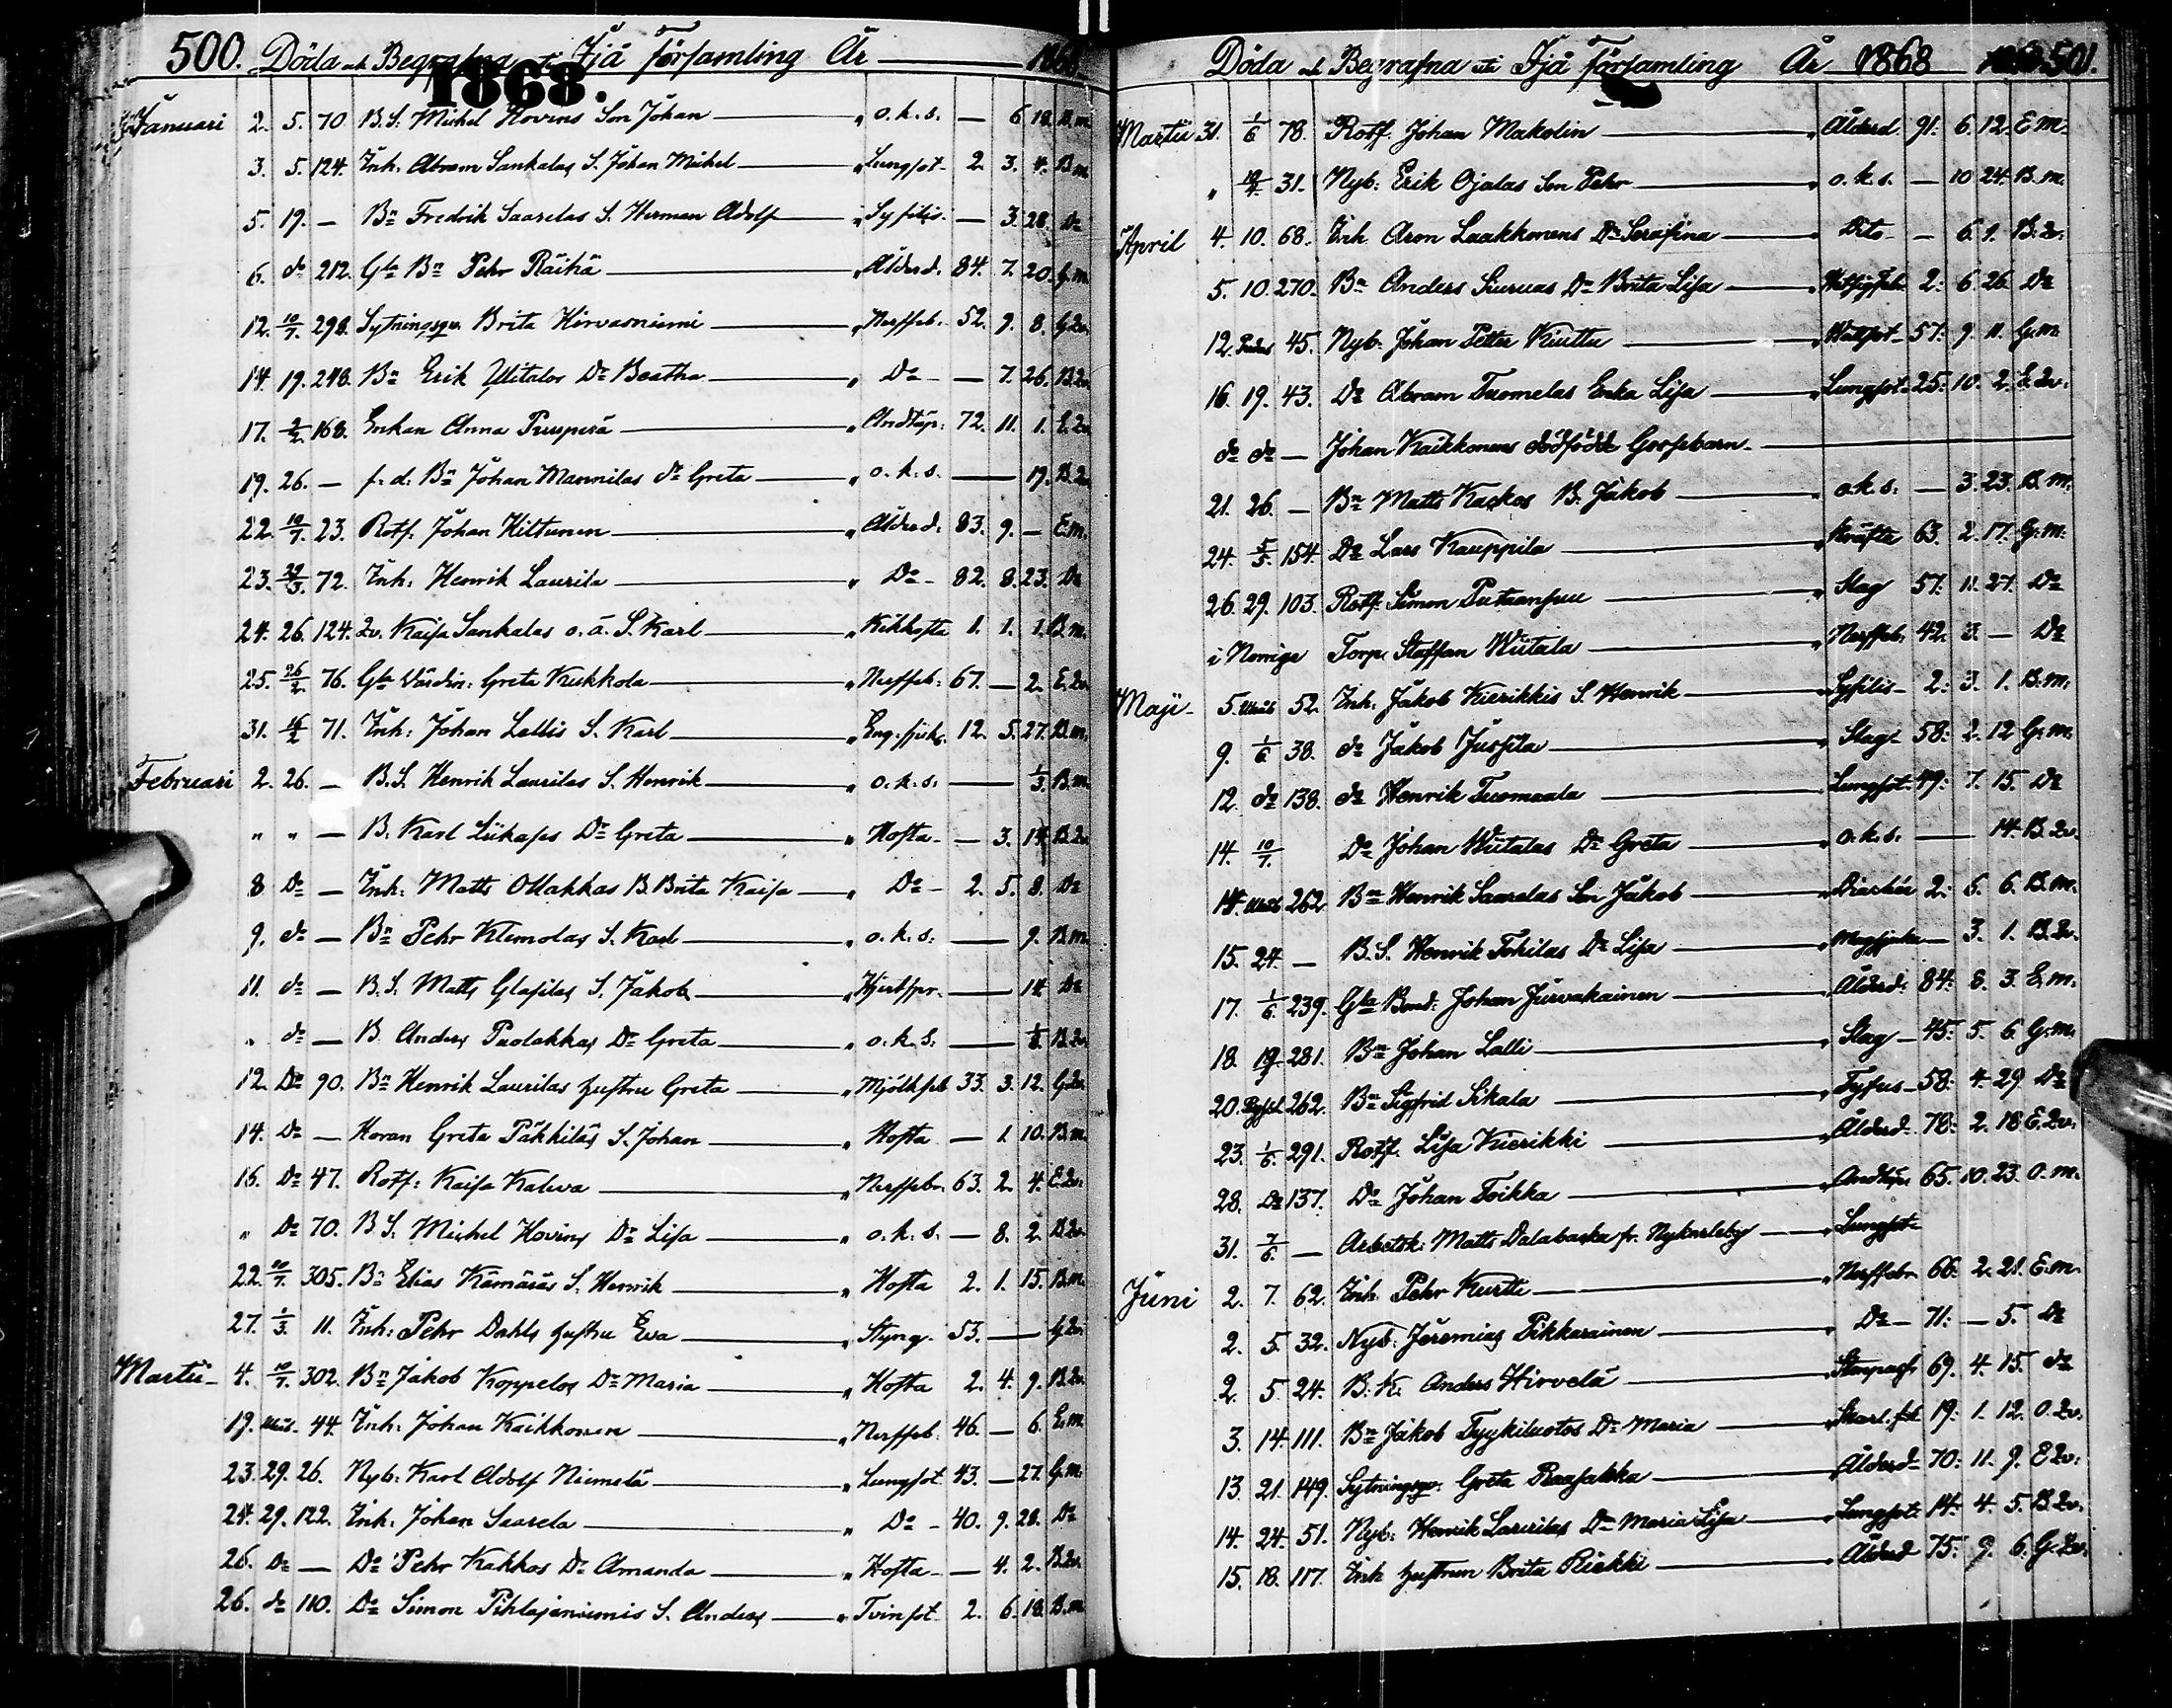 500. Döda och Begrafna uti Ijå församling År 1868
1868.
Januari 2. 5. 70. B.S. Michel Hovins Son Johan „ o.k.s. — 6. 18. B.m.
3. 5. 124. Inh. Abram Sankalas S. Johan Michel „ Lungsot 2. 3. 4. B.m.
5. 19. — Bn Fredrik Saarelas S. Herman Adolf „ Syfilis. — 3. 28. Do
6. do 212. Gla Bn Pehr Räihä „ Ålderd. 84. 7. 20. G.m.
12. 10/7. 298. Sytningsqv. Brita Hirvasniemi „ Nerffeb. 52. 9. 8. G.Qv.
14. 19. 248. Bn Erik Ylitalos Dr Beatha „ Do — 7. 26. B.Qv.
17. 2/2. 168. Enkan Anna Puuperä „ Andtäp. 72. 11. 1. E.Qv.
19. 26. — f.d. Bn Johan Mannilas dr Greta „ o.k.s. — 19. B.Qv.
22. 10/7. 23. Rotf. Johan Hiltunen „ Ålderd. 83. 9. — E.m.
23. 29/3. 72. Inh. Henrik Laurila „ Do 82. 8. 23. Do
24. 26. 124. Qv. Kaisa Sankalas o.ä. S. Karl „ Kikhosta 1. 1. 1. B.m.
25. 26/2. 76. Gla Värdin: Greta Kukkola „ Nerffeb. 67. — 2. E.Qv.
31. 16/2 71. Inh. Johan Lallis S. Karl „ Eng. sjuk. 12. 5. 27. B.m.
Februari 2. 26. — B.S. Henrik Laurilas S. Henrik „ o.k.s. — 1/3. B.m.
„ „ — B. Karl Liikases Dr Greta „ Hosta — 3. 14. B.Qv.
8 Do — Inh. Matts Ollakkas B. Brita Kaisa „ Do 2. 5. 8. Do
9. do — Bn Pehr Klemolas S. Karl „ o.k.s. — 9. B.m.
11. do — B.S. Matts Glasilas S. Jakob „ — 14. Do
„ do — B. Anders Paolakkas Dr Greta „ o.k.s. — B.Qv.
12. Do 90. Bn Henrik Laurilas hustru Greta „ Mjölkfeb. 33. 3. 12. G.Qv.
14. Do — Horan Greta Päkkiläs S. Johan „ Hosta — 1. 10. B.m.
16. Do 47. Rotf: Kaisa Kaleva „ Nerffeb. 63. 2. 4. E.Qv.
„ Do 70. B.S. Michel Hovins Dr Lisa „ o.k.s. — 8. 2. B.Qv.
22. 10/7. 305. Bn Elias Kämäräs S. Henrik „ Hosta 2. 1. 15. B.m.
27. 1/3. 11. Inh. Pehr Dahls hustru Eva „ Styng. 53. — G.Qv.
Martii 4. 10/7. 302. Bn Jakob Koppelos Dr Maria „ Hosta 2. 4. 9. B.Qv.
19. 44. Inh. Johan Kaikkonen „ Nerffeb. 46. — 6. E.m.
23. 29. 26. Nyb. Karl Adolf Niemelä „ Lungsot 43. — 27. G.m.
24. 29. 122. Inh. Johan Saarela „ Do 40. 9. 28. Do
26. Do — Do Pehr Kakkos Dr Amanda „ Hosta — 4. 2. B.Qv.
26. do 110. Do Simon Pihlajaniemis S. Anders „ Tvinsot. 2. 6. 18. B.m.
Döda och Begrafna uti Ijå församling År 1868 501.
Martii 31. 1/6 78. Rotf. Johan Makolin „ Ålderd. 91. 6. 12. E.m.
„ 31. Nyb. Erik Ojalas Son Pehr „ o.k.s. — 10. 24. B.m.
April 4. 10. 68. Inh. Aron Laakkonens Dr Serafina „ Dito — 6. 1. B.Qv.
5. 10. 270. Bn Anders Siuruas Dr Brita Lisa „ 2. 6. 26. Do
12. 45. Nyb. Johan Petter Kiuttu „ Vattsot 57. 9. 11. G.m.
16. 19. 43. Do Abram Tuomelas Enka Lisa „ Lungsot 25. 10. 2. E.Qv.
do do — Johan Kaikkonens dödfödde Gossebarn
21. 26. — Bn Matts Kaskos B. Jakob „ o.k.s. — 3. 23. B.m.
24. 5/5. 154. Do Lars Kauppila „ Kräfta 63. 2. 17. G.m.
26. 29. 103. Rotf. Simon Putaansuu „ Slag 57. 11. 27. Do
i Norrige Torp. Staffan Wiitala „ Nerffeb. 42. 3. — Do
Maji 5. 52. Inh. Jakob Kierikkis S. Henrik „ Syfilis 2. 3. 1. B.m.
9. 1/6 38. do Jakob Jussila „ Slag 58. 2. 12. G.m.
12. do 138. do Henrik Tuomaala „ Lungsot. 49. 7. 15. Do
14. 10/7. Do Johan Wiitalas Dr Greta „ o.k.s. — 14. B.Qv.
14. 262. Bn Henrik Saarelas Son Jakob „ 2. 6. 6. B.m.
15. 24. — B.S. Henrik Tokilas Dr Lisa „ — 3. 1. B.Qv.
17. 1/6. 239. Gla Bond. Johan Jurvakainen „ Ålderd. 84. 8. 3. E.m.
18. 281. Bn Johan Lalli „ Slag 45. 5. 6. G.m.
20. 262. Bn Sigfrid Sikala „ Tyfus 58. 4. 29. Do
23. 1/6. 291. Rotf. Lisa Kierikki „ Ålderd. 78. 2. 18. E.Qv.
28. Do 137. Do Johan Toikka „ Andtäp. 65. 10. 23. O.m.
31. 7/6. — Arbetsk. Matts Dalabacka fr. Nykarleby „ Lungsot
Juni 2. 7. 62. Inh. Pehr Kurtti „ Nerffeb. 66. 2. 21. E.m.
2. 5. 32. Nyb. Jeremias Pikkarainen „ Do 71. — 5. Do
2. 5. 24. B.K. Anders Hirvelä „ 69. 4. 15. do
3. 14. 111. Bn Jakob Tyykiluotos Dr Maria „ 19. 1. 12. O.Qv.
13. 21. 149. Sytningsqv. Greta Raasakka „ Ålderd. 70. 11. 9. E.Qv.
14. 24. 51. Nyb. Henrik Laurilas Dr Maria Lisa „ Lungsot. 14. 4. 5. B.Qv.
15. 18. 117. Inh hustrun Brita Riekki „ Ålderd 75. 9. 6. G.Qv.